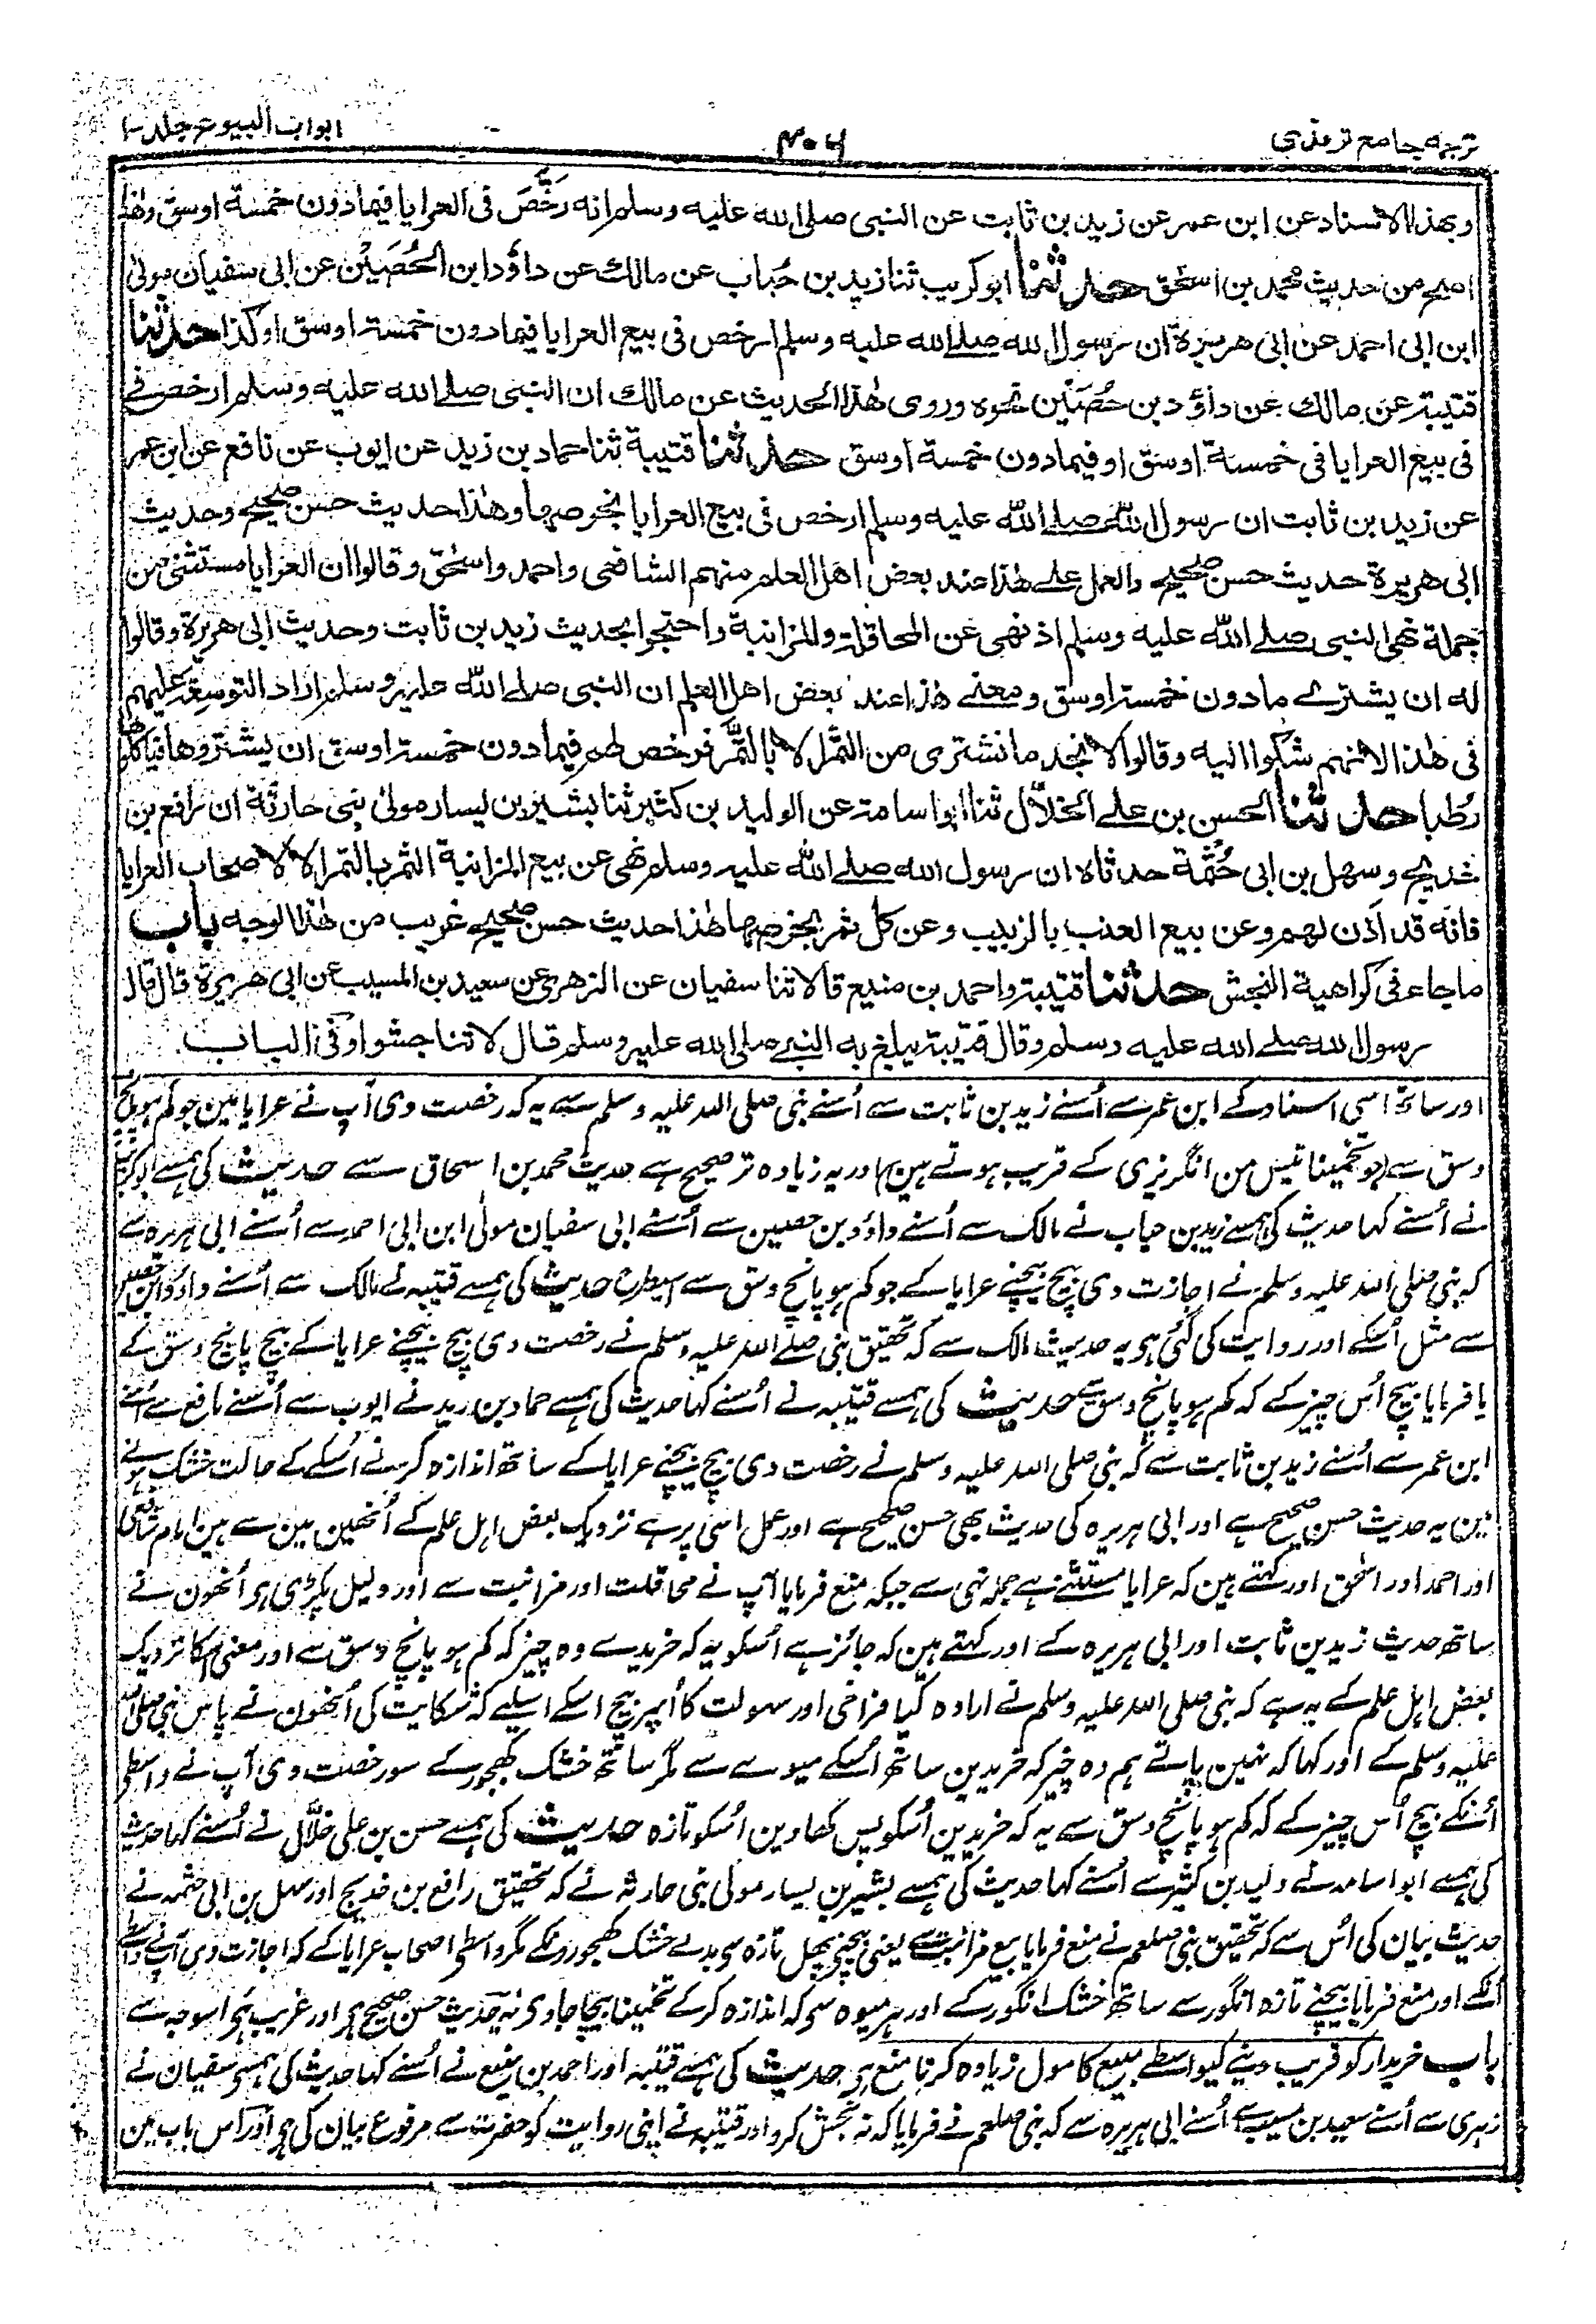 ترجمہ جامع ترمذی
۴۰۶
ابواب البیوع جلد۱
وبهذا الاسناد عن ابن عمر عن زيد بن ثابت عن النبي صلى الله عليه وسلم انه رَخَّصَ فى العرايا فيما دون خمسة اوسق وهذا
اصح من حديث محمد بن اسحٰق حدثنا ابو كريب ثنا زيد بن حُباب عن مالك عن داؤد ابن الحُصَيْن عن ابى سفيان مولى
ابن ابى احمد عن ابى هريرة ان رسول الله صلے الله عليه وسلم ارخص فى بيع العرايا فيما دون خمسة اوسق او كذا حدثنا
قتيبة عن مالك عن داؤد بن حُصَيْن نحوه وروى هٰذا الحديث عن مالك ان النبى صلے الله عليه وسلم ارخص فے
فى بيع العرايا فى خمسة اوسق او فيما دون خمسة اوسق حدثنا قتيبة ثنا حماد بن زيد عن ايوب عن نافع عن ابن عمر
عن زيد بن ثابت ان رسول الله صلے الله عليه وسلم ارخص فى بيع العرايا بخرصها وهٰذا حديث حسن صحيح وحديث
ابى هريرة حديث حسن صحيح والعمل علے هٰذا عند بعض اهل العلم منهم الشافعى واحمد واسحٰق وقالوا ان العرايا مستثنى من
جملة نهى النبى صلے الله عليه وسلم اذ نهى عن المحاقلة والمزابنة واحتجوا بحديث زيد بن ثابت وحديث ابى هريرة وقالوا
له ان يشترے ما دون خمسة اوسق ومعنے هٰذا عند بعض اهل العلم ان النبى صلے الله عليه وسلم اراد التوسعة عليهم
فى هٰذا لانهم شكوا اليه وقالوا لا نجد ما نشترى من الثمر الا بالتمر فرخص لهم فيما دون خمسة اوسق ان يشتروها فياكلوها
رُطبا حدثنا الحسن بن علے الخلّال ثنا ابو اسامة عن الوليد بن كثير ثنا بشير بن يسار مولىٰ بنى حارثة ان رافع بن
خديج وسهل بن ابى حُثْمَة حدثاه ان رسول الله صلے الله عليه وسلم نهى عن بيع المزابنة الثمر بالتمر الا لاصحاب العرايا
فانه قد اَذن لهم وعن بيع العنب بالزبيب وعن كل ثمر بخرصها هٰذا حديث حسن صحيح غريب من هٰذا الوجه باب
ما جاء فى كراهية النجش حدثنا قتيبة واحمد بن منيع قالا ثنا سفيان عن الزهرى عن سعيد بن المسيب عن ابى هريرة قال قال
رسول الله صلے الله عليه وسلم وقال قتيبة يبلغ به النبے صلى الله عليه وسلم قال لا تناجشوا وفى الباب
اور ساتھ اسی اسناد کے ابن عمر سے اُسنے زید بن ثابت سے اُسنے نبی صلی اللہ علیہ وسلم سے یہ کہ رخصت دی آپ نے عرایا مین جو کم ہو پانچ
وسق سے (جو تخمینا تیس من انگریزی کے قریب ہوتے ہین) اور یہ زیادہ تر صحیح ہے حدیث محمد بن اسحاق سے حدیث کی ہمسے ابوکریب
نے اُسنے کہا حدیث کی ہمسے زید بن حباب نے مالک سے اُسنے داؤد بن حصین سے اُسنے ابی سفیان مولیٰ ابن ابی احمد سے اُسنے ابی ہریرہ سے
کہ نبی صلی اللہ علیہ وسلم نے اجازت دی بیچ بیچنے عرایا کے جو کم ہو پانچ وسق سے اسیطرح حدیث کی ہمسے قتیبہ نے مالک سے اُسنے داؤد ابن حصین
سے مثل اُسکے اور روایت کی گئی ہو یہ حدیث مالک سے کہ تحقیق نبی صلے اللہ علیہ وسلم نے رخصت دی بیچ بیچنے عرایا کے بیچ پانچ وسق کے
یا فرمایا بیچ اُس چیز کے کہ کم ہو پانچ وسق سے حدیث کی ہمسے قتیبہ نے اُسنے کہا حدیث کی ہمسے حماد بن زید نے ایوب سے اُسنے نافع سے اُسنے
ابن عمر سے اُسنے زید بن ثابت سے کہ نبی صلی اللہ علیہ وسلم نے رخصت دی بیچ بیچنے عرایا کے ساتھ اندازہ کرنے اُسکے کے حالت خشک ہونے
مین یہ حدیث حسن صحیح ہے اور ابی ہریرہ کی حدیث بھی حسن صحیح ہے اور عمل اسی پر ہے نزدیک بعض اہل علم کے اُنھین مین سے ہین امام شافعی
اور احمد اور اسحٰق اور کہتے ہین کہ عرایا مستثنے ہے جملہ نہی سے جبکہ منع فرمایا آپ نے محاقلت اور مزابنت سے اور دلیل پکڑی ہو اُنھون نے
ساتھ حدیث زید بن ثابت اور ابی ہریرہ کے اور کہتے ہین کہ جائز ہے اُسکو یہ کہ خریدے وہ چیز کہ کم ہو پانچ وسق سے اور معنی اسکا نزدیک
بعض اہل علم کے یہ ہے کہ نبی صلی اللہ علیہ وسلم نے ارادہ کیا فراخی اور سہولت کا اُنپر بیچ اسکے اسلیے کہ شکایت کی اُنھون نے پاس نبی صلی اللہ
علیہ وسلم کے اور کہا کہ نہین پاتے ہم وہ چیز کہ خریدین ساتھ اُسکے میوے سے مگر ساتھ خشک کھجور کے سو رخصت دی آپ نے واسطی
اُنکے بیچ اُس چیز کے کہ کم ہو پانچ وسق سے یہ کہ خریدین اُسکو پس کھاوین اُسکو تازہ حدیث کی ہمسے حسن بن علی خلّال نے اُسنے کہا حدیث
کی ہمسے ابو اسامہ نے ولید بن کثیر سے اُسنے کہا حدیث کی ہمسے بشیر بن یسار مولی بنی حارثہ نے کہ تحقیق رافع بن خدیج اور سہل بن ابی حثمہ نے
حدیث بیان کی اُس سے کہ تحقیق نبی صلعم نے منع فرمایا بیع مزابنت سے یعنی بیچنے پھل تازہ سی بدلے خشک کھجورونکے مگر واسطی اصحاب عرایا کے کہ اجازت دی آپنے واسطے
اُنکے اور منع فرمایا بیچنے تازہ انگور سے ساتھ خشک انگور کے اور ہر میوہ سی کہ اندازہ کرکے تخمینا بیچا جاوی یہ حدیث حسن صحیح ہر اور غریب ہَی اسوجہ سے
باب خریدار کو فریب دینے کیواسطے مبیع کا مول زیادہ کرنا منع ہی حدیث کی ہمسے قتیبہ اور احمد بن منیع نے اُسنے کہا حدیث کی ہمسی سفیان نے
زہری سے اُسنے سعید بن مسیب سے اُسنے ابی ہریرہ سے کہ نبی صلعم نے فرمایا کہ نہ نجش کرو اور قتیبہ نے اپنی روایت کو حضرت سے مرفوع بیان کی ہی اور اس باب مین